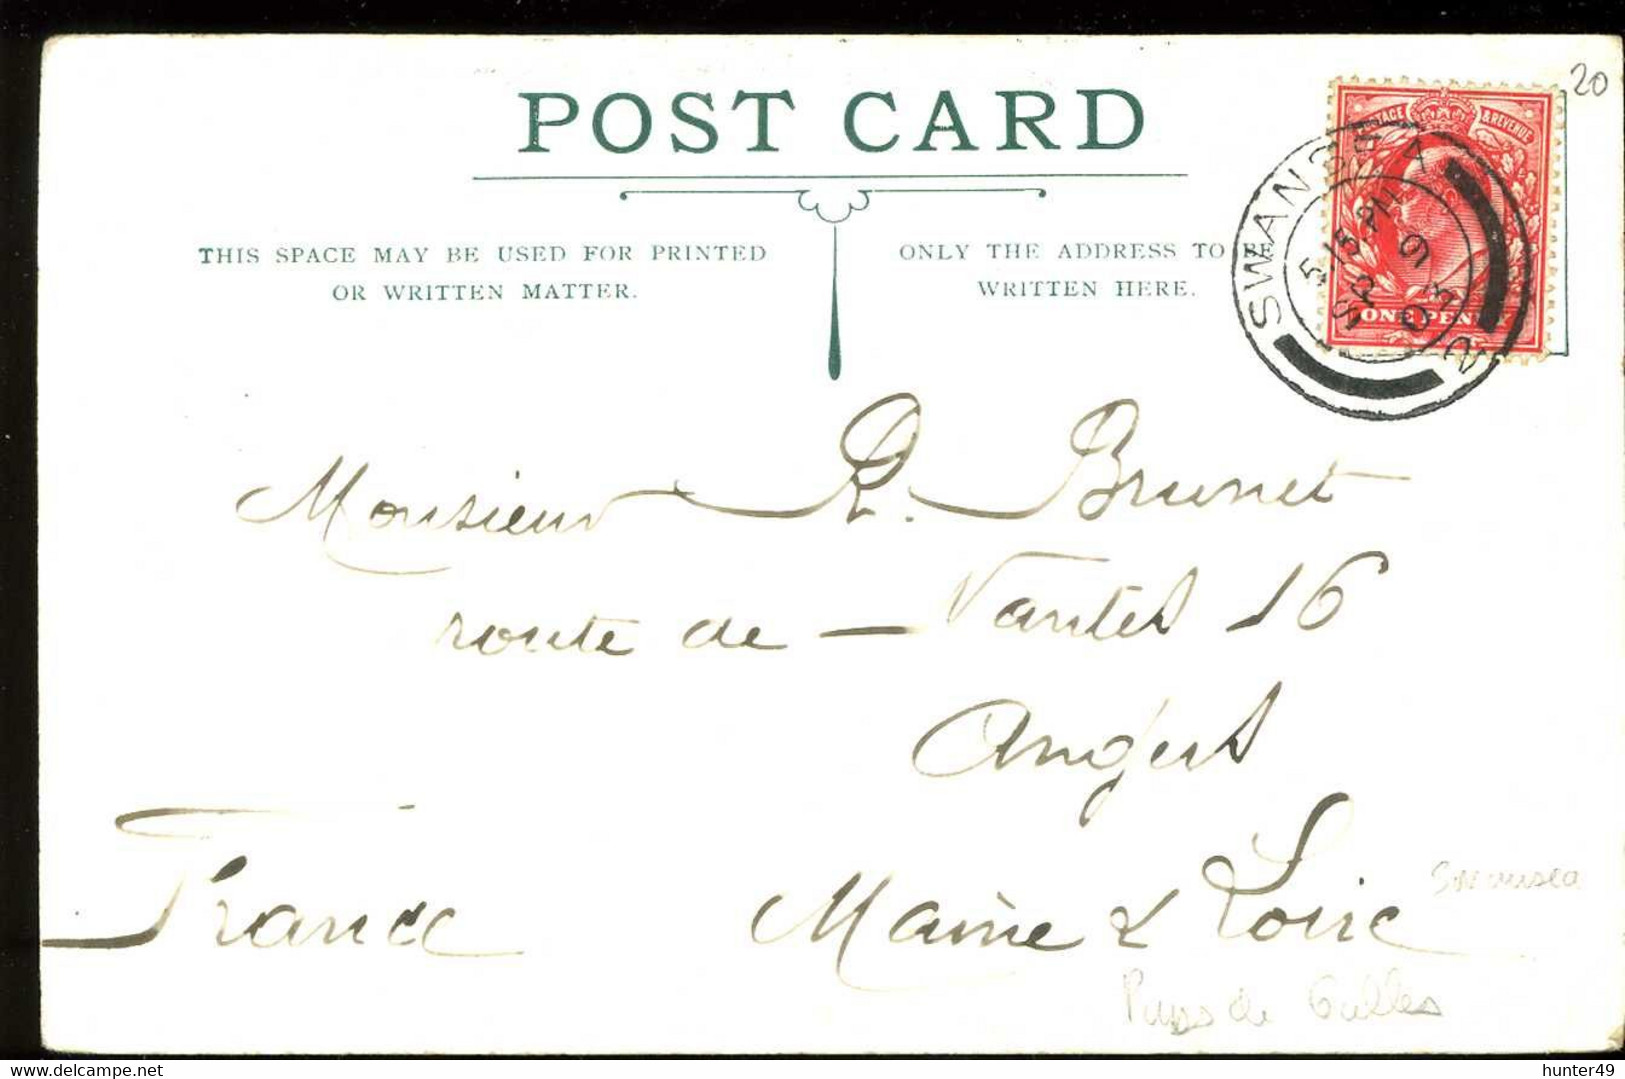 20
POST CARD
THIS SPACE MAY BE USED FOR PRINTED
OR WRITTEN MATTER.
ONLY THE ADDRESS TO BE
WRITTEN HERE.
& REVENUE
ONE PENNY
SWANSEA
5 15 PM
SP 9
03
2
Monsieur R. Brunet
route de Nantes 16
Angers
Maine & Loire
France
Swansea
Pays de Galles
delcampe.net
hunter49